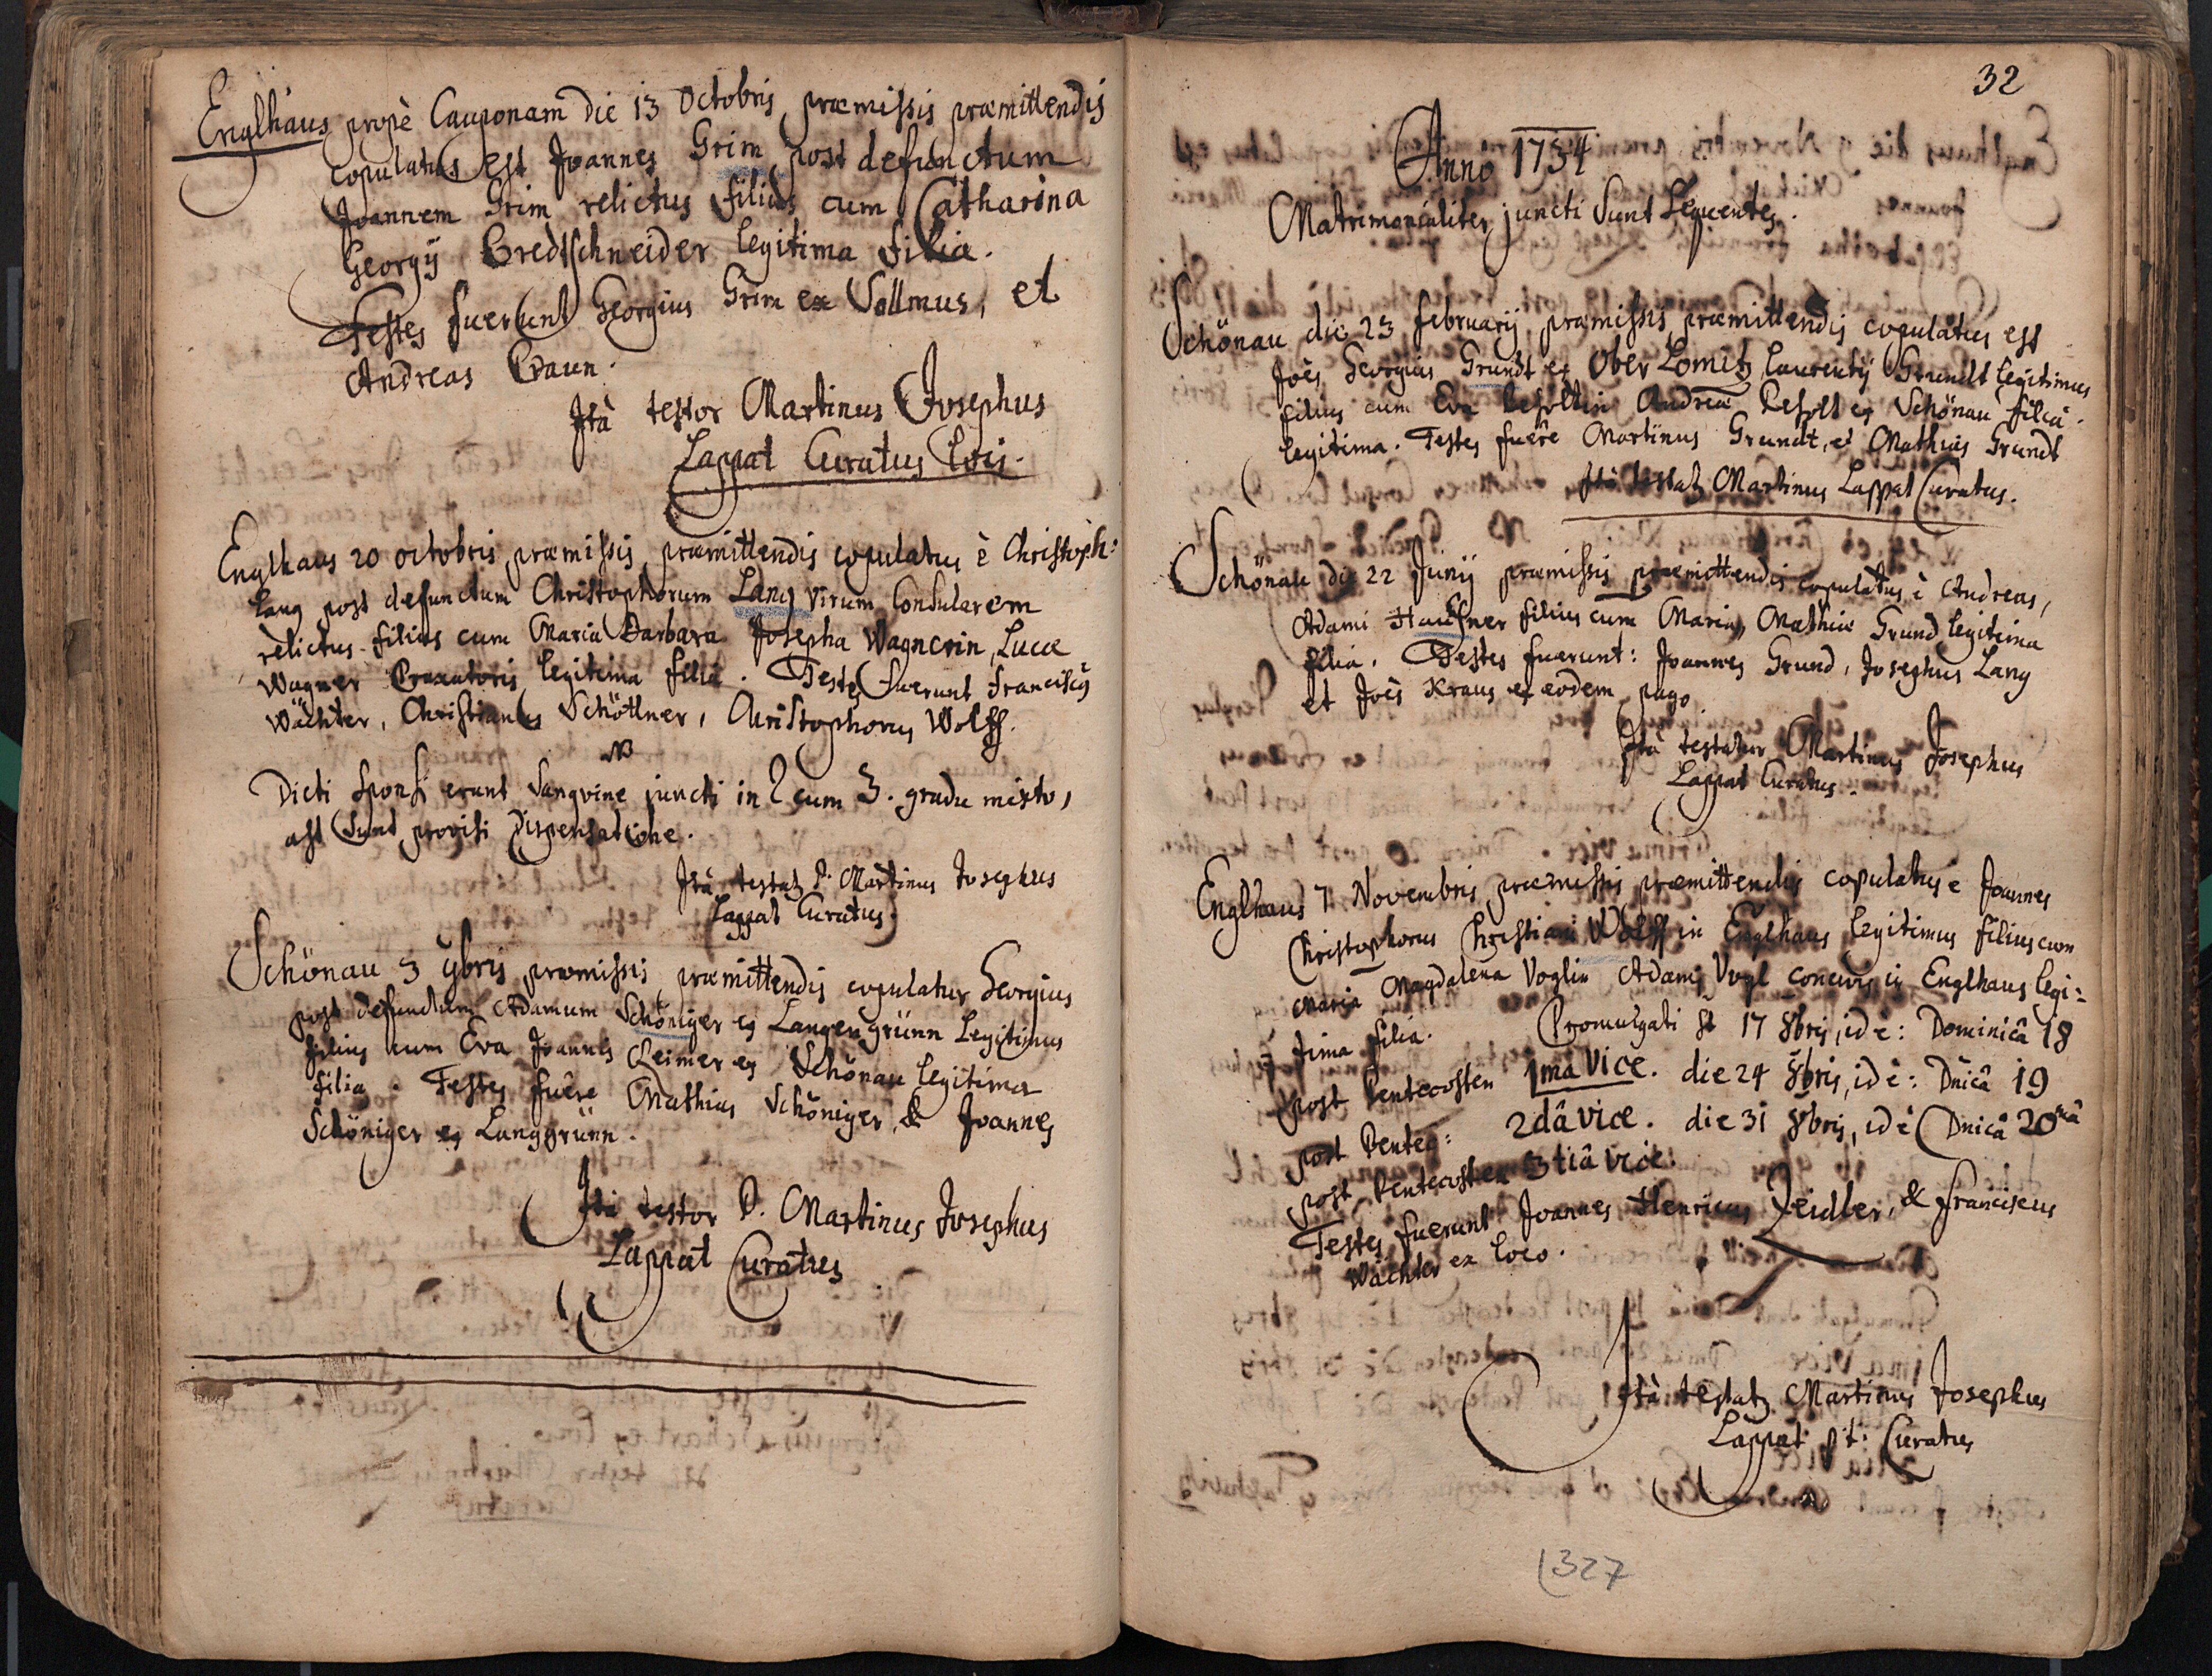 Englhaus propè Cauponam die 13 Octobris præmissis præmittendis
copulatus est Joannes Grim post defunctum
Joannem Grim relictus filius cum Catharina
Georgij Bredtschneider legitima filia.
Testes fuerunt Georgius Grim ex Sollmus, et
Andreas Braun.
Ità testor Martinus Josephus
Lappat Curatus loci.
Englhaus 20 octobris præmissis præmittendis copulatus è Christoph:
Lang post defunctum Christophorum Lang virum Consularem
relictus filius cum Maria Barbara Josepha Wagnerin, Lucæ
Wagner Braxatoris legitima filia. Testes fuerunt Franciscus
Wächter, Christianus Schöttner, Christophorus Wolff.
NB
Dicti Sponsi erant Sangvine juncti in 2 cum 3. gradu mixto,
ast sunt provisi dispensatione.
Ità testatz P. Martinus Josephus
Lappat Curatus.
Schönau 3 9bris præmissis præmittendis copulatur Georgius
post defunctum Adamum Schöniger ex Langengrünn legitimus
filius cum Eva Joannis Leimer ex Schönau legitima
filia. Testes fuêre Mathias Schöniger, & Joannes
Schöniger ex Langgrünn.
Ità testor P. Martinus Josephus
Lappat Curatus
32
Anno 1734
Matrimonialiter juncti sunt Sequentes.
Schönau die 23 februarij præmissis præmittendis copulatus est
Joês Georgius Grundt ex Ober Lomitz Laurentij Grundt legitimus
filius cum Eva Andreæ ex Schönau filia
legitima. Testes fuêre Martinus Grundt, et Mathias Grundt
Ità testatz Martinus Lappat Curatus.
Schönau die 22 Junij præmissis præmittendis copulatus è Andreas,
Adami Haussner filius cum Maria, Mathiæ Grund legitima
filia. Testes fuerunt: Joannes Grund, Josephus Lang
et Joês Kraus ex eodem pago.
Ità testatur Martinus Josephus
Lappat Curatus.
Englhaus 7 Novembris præmissis præmittendis copulatus è Joannes
Christophorus Christiani Wolff in Englhaus legitimus filius cum
Maria Magdalena Voglin Adami Vogl concivis in Englhaus legi:
tima filia. Promulgati st 17 8bris, id è: Dominicâ 18
post Pentecosten 1ma vice. die 24 8bris, id è: Dnicâ 19
post Pentec: 2dâ vice. die 31 8bris, id è Dnicâ 20mâ
post Pentecosten 3tiâ vice.
Testes fuerunt Joannes Henricus Zeidler, & Franciscus
Wächter ex loco.
Ità testatz Martinus Josephus
Lappat p.t. Curatus
327